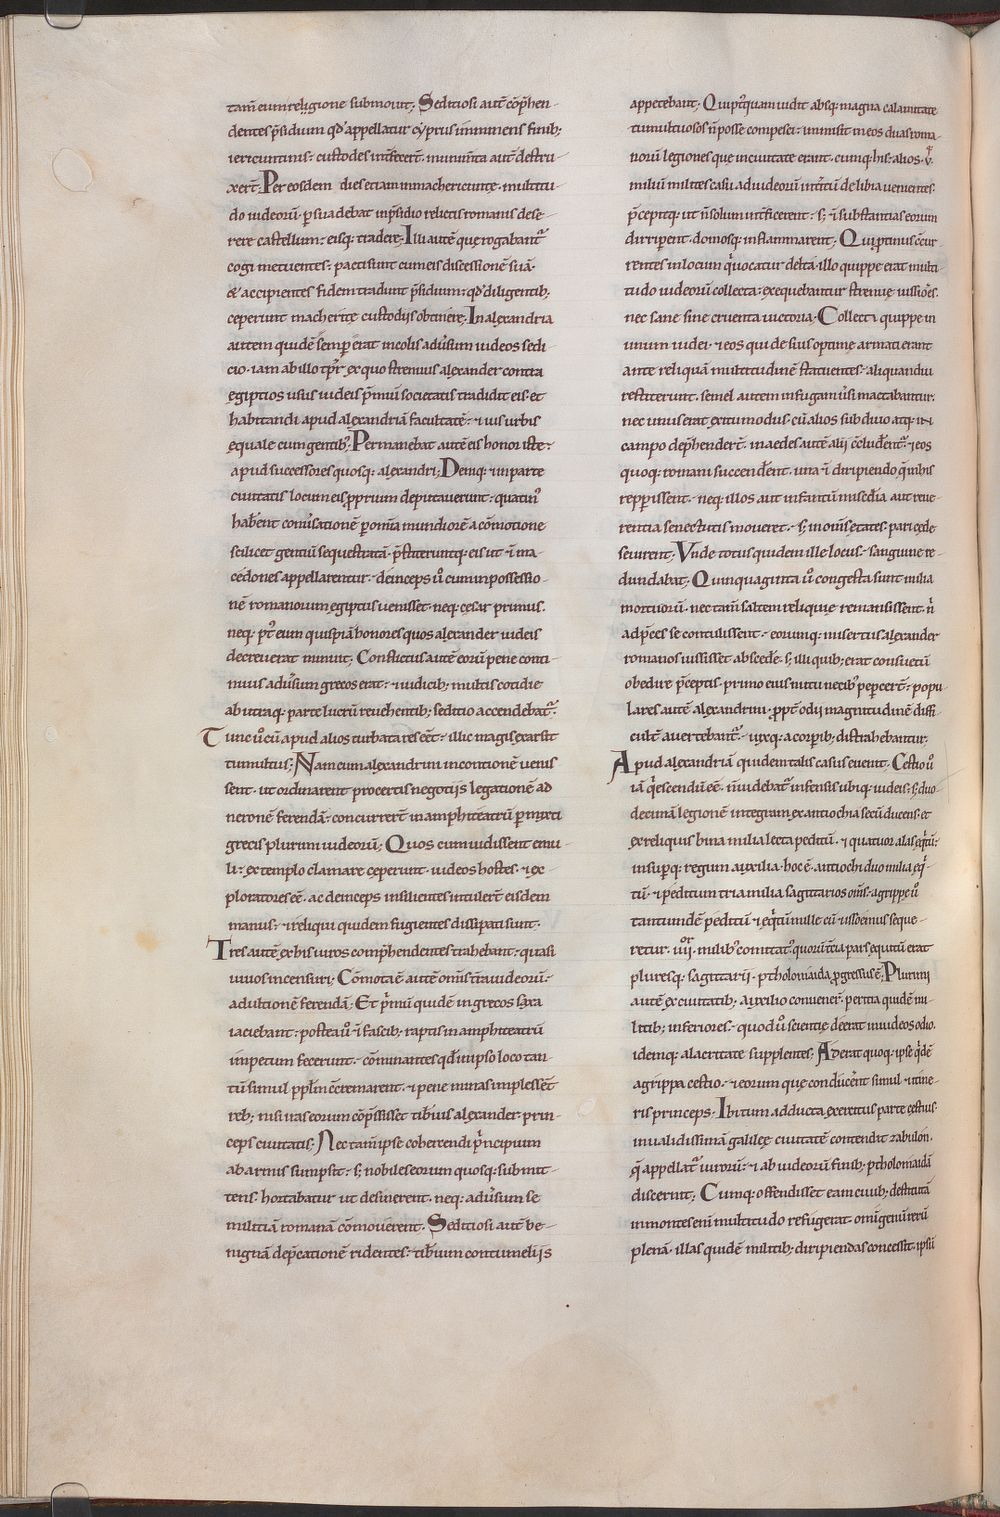 tam̄ eum religione submouit; Seditiosi aut̄ cōp̄hen-
dentes p̄sidium qd̓ appellatur cẏprus imminens finib;
iericuntinis· custodes int̄fecer̄t· munim̄ta aut̄ destru-
xer̄t; Per eosdem dies etiam in machericunte· multitu-
do iudeorū· ꝑsuadebat in p̄sidio relictis romanis dese-
rere castellum· eisq; tradere; Illi autē quę rogabant᷑
cogi metuentes· pactisunt cum eis discessionē suā·
& accipientes fidem tradunt p̄sidium· qd̓ diligentib;
ceperunt macheritę custodiis obtinere; In alexandria
autem quidē semꝑ erat incolis adūsum iudeos sedi-
cio· iam ab illo tp̄r ex quo strenuus alexander contra
egiptios usus iudeis p̄miū societatis tradidit eis· et
habitandi apud alexandriā facultatē· & ius urbis
equale cum gentib; Permanebat autē eis honor iste·
apud successores quosq; alexandri; Deniq; in parte
ciuitatis locum eis proprium deputauerunt· quatin᷒
haberent conūsationē ꝑ omīa mundiorē a cōmotione
scilicet gentiū sequestratā· p̄stiteruntq; eis ut & ma-
cedones appellarentur· deinceps ū cum in possessio-
nē romanorum egiptus uenisset· neq; cesar primus·
neq; pt̄ eum quispiā honores quos alexander iudeis
decreuerat minuit; Conflictus autē eorū pene conti-
nuus adūsum grecos erat· & iudicib; multis cotidie
ab utraq; parte lucrū reuehentib; seditio accendebat᷑·
Tunc ū cū apud alios turbata res eēt· illic magis exarsit
tumultus; Nam cum alexandrini in contionē uenis
sent· ut ordinarent pro certis negotiis legationē ad
neronē ferendā· concurrer̄t in amphiteatrū ꝑmixti
grecis plurimi iudeorū; Quos cum uidissent emu-
li· extemplo clamare ceperunt· iudeos hostes· & ex-
ploratores eē· ac deinceps insilientes intuler̄t eisdem
manus· & reliqui quidem fugientes dissipati sunt·
Tres autē ex his uiros comp̄hendentes trahebant· quasi
uiuos incensuri; Cōmotaē autē om̄s t̄ra iudeorū·
ad ultionē ferendā; Et p̄mū quidē in grecos saxa
iaciebant· postea ū & fascib; raptis in amphiteatrū
impetum fecerunt· cōminantes qd̓ in ipso loco tan-
tū simul pplm̄ ēcremarent· & pene minas implessēt
reb; nisi iras eorum cōp̄ssisset tiberius alexander prin-
ceps ciuitatis; Nec tam̄ ipse coherendi p̄ncipium
ab armis sumpsit· s; nobiles eorum quosq; submit-
tens· hortabatur ut desinerent· neq; adūsum se
militiā romanā cōmouerent· Seditiosi aut̄ be-
nignā dep̄cationē ridentes· tiberium contumeliis
appetebant; Qui pt̄quam uidit absq; magna calamitate
tumultuosos n̄ posse compesci· immisit in eos duas roma-
norū legiones que in ciuitate erant· cumq; his· alios·v̄·
miliū milites casu ad iudeorū int̄itū de libia uenientes·
p̄cepitq; ut n̄ solum int̄ficerent· s; & substantias eorum
dirriperent· domosq; inflammarent; Qui ꝓtinus c̄cur-
rentes in locum q̄ uocatur delta· illo quippe erat multi-
tudo iudeorū collecta· exequebantur strenuę iussiōes·
nec sane sine cruenta uictoria· Collecti quippe in
unum iudei· & eos qui de suis optime armati erant
ante reliquā multitudinē statuentes· aliquandiu
restiterunt· semel autem in fugam ūsi mactabantur·
nec unus erat exitii modus· cū alios sub diuo atq; in
campo dep̄henderēt· in aedes autē alii c̄cluderent᷑· & eos
quoq; romani succenderent· una & diripiendo q̄ in his
repperissent· neq; illos aut infantū misedīa aut reue-
rentia senectutis moueret· s; in om̄s etates· pari cęde
seuirent; Vnde totus quidem ille locus· sanguine re-
dundabat; Quinquaginta ū congesta sunt milia
mortuorū· nec tam̄ saltem reliquię remansissent· n̄
ad p̄ces se contulissent· eorumq; misertus alexander
romanos iussisset abscede· s; illi quib; erat consuetū
obedire p̄ceptis· primo eius nutu necib; peꝑcer̄t· popu-
lares autē alexandrini· ꝓpt̄ odii magnitudinē diffi-
cult̄ auertebant᷑· uixq; a corporib; distrahebantur·
Apud alexandriā quidem talis casus euenit; Cestio ū
iā q̄escendū eē· n̄ uidebat᷑ infensis ubiq; iudeis· s; duo-
decimā legionē integram ex antiochia secū ducens· et
ex reliquis bina milia lecta peditū· & quatuor alas eq̄tū·
insuperq; regum auxilia· hoc ē· antiochi duo milia eq̄-
tū· & peditum tria milia sagittarios om̄s· agrippę ū
tantundē peditū & eq̄tū mille cū· & soemus seque-
retur· iiiior· milib; comitat᷒ quorū tc̄ia pars equitū erat
pluresq; sagittarii· ptholomaida, ꝓgressus ē; Plurimi
autē ex ciuitatib; auxilio conuener̄· peritia quidē mi-
litib; inferiores· quod ū scientię deerat in iudeos odio·
idemq; alacritate supplentes; Aderat quoq; ipse q̄dē
agrippa cestio· & eorum quę conducer̄t simul & itine-
ris princeps· Ibi tum adducta exercitus parte cestius
in ualidissimā galileę ciuitatē contendit zabulōn·
q̄ appellat᷑ uirorū· & ab iudeorū finib; ptholomaidā
discernit; Cumq; offendisset eam ciuib; destitutā
in montes enī multitudo refugerat· omīgenū rerū
plenā· illas quidē militib; diripiendas concessit· ipsū